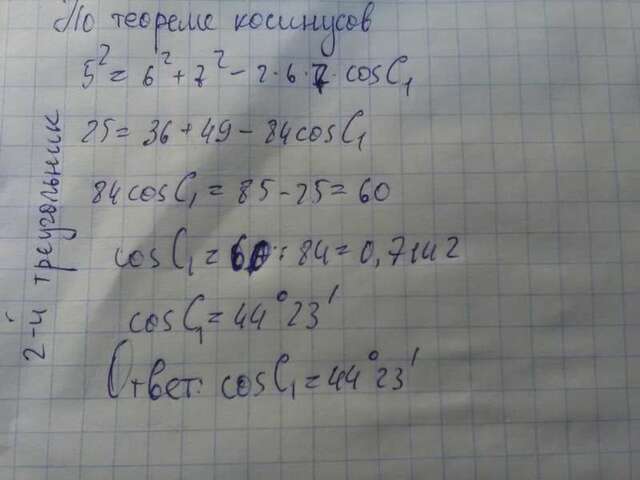 По теореме косинусов
5² = 6² + 7² - 2·6·7·cosC₁
25 = 36 + 49 - 84cosC₁
84cosC₁ = 85 - 25 = 60
cosC₁ = 60 : 84 = 0,7142
cosC₁ = 44°23'
Ответ: cosC₁ = 44°23'
2-й треугольник